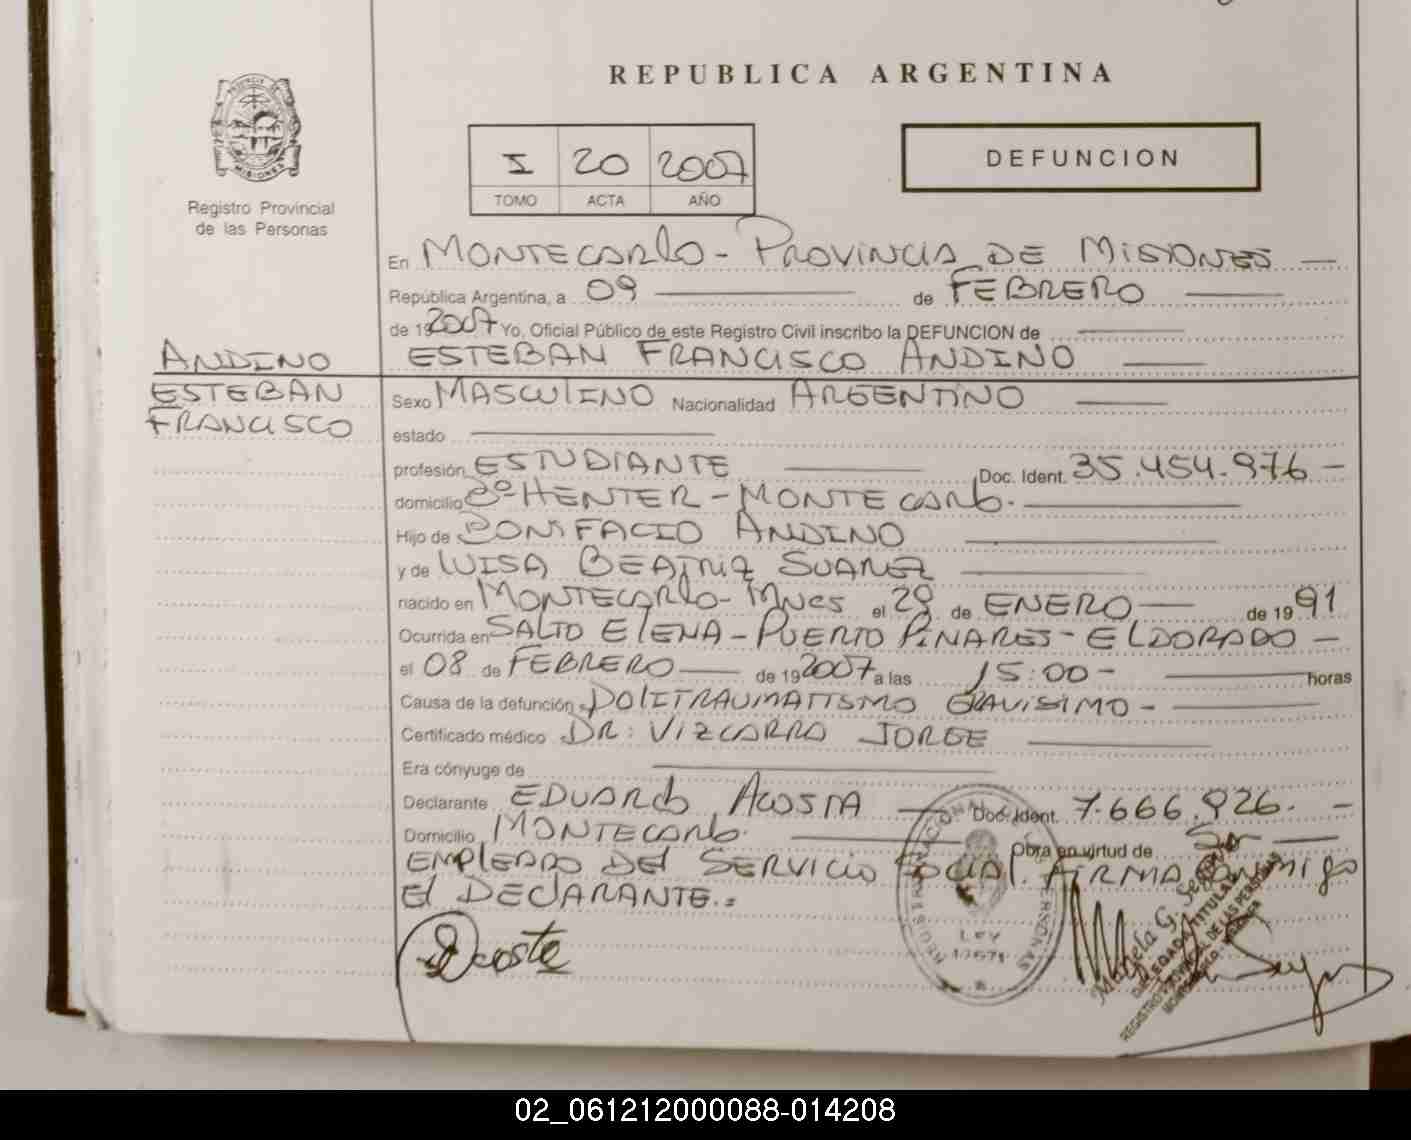 REPUBLICA ARGENTINA
PROVINCIA DE
MISIONES
Registro Provincial
de las Personas
I 20 2007
TOMO ACTA AÑO
DEFUNCION
En MONTECARLO - PROVINCIA DE MISIONES
República Argentina, a 09 de FEBRERO
de 19 2007 Yo, Oficial Público de este Registro Civil inscribo la DEFUNCION de
ANDINO ESTEBAN FRANCISCO ANDINO
ESTEBAN
FRANCISCO
Sexo MASCULINO Nacionalidad ARGENTINO
estado
profesión ESTUDIANTE Doc. Ident. 35.454.976 -
domicilio Bº HENTER - MONTECARLO.
Hijo de BONIFACIO ANDINO
y de LUISA BEATRIZ SUAREZ
nacido en MONTECARLO - Mnes el 29 de ENERO de 19 91
Ocurrida en SALTO ELENA - PUERTO PINARES - ELDORADO -
el 08 de FEBRERO de 19 2007 a las 15:00 - horas
Causa de la defunción POLITRAUMATISMO GRAVISIMO -
Certificado médico DR: VIZCARRA JORGE
Era cónyuge de
Declarante EDUARDO ACOSTA Doc. Ident. 7.666.926. -
Domicilio MONTECARLO. Obra en virtud de Ser
EMPLEADO DEL SERVICIO SOCIAL. FIRMA conmigo
El DECLARANTE.=
Acosta
LEY
17671
DELEGADA TITULAR
REGISTRO PROVINCIAL DE LAS PERSONAS
02_061212000088-014208